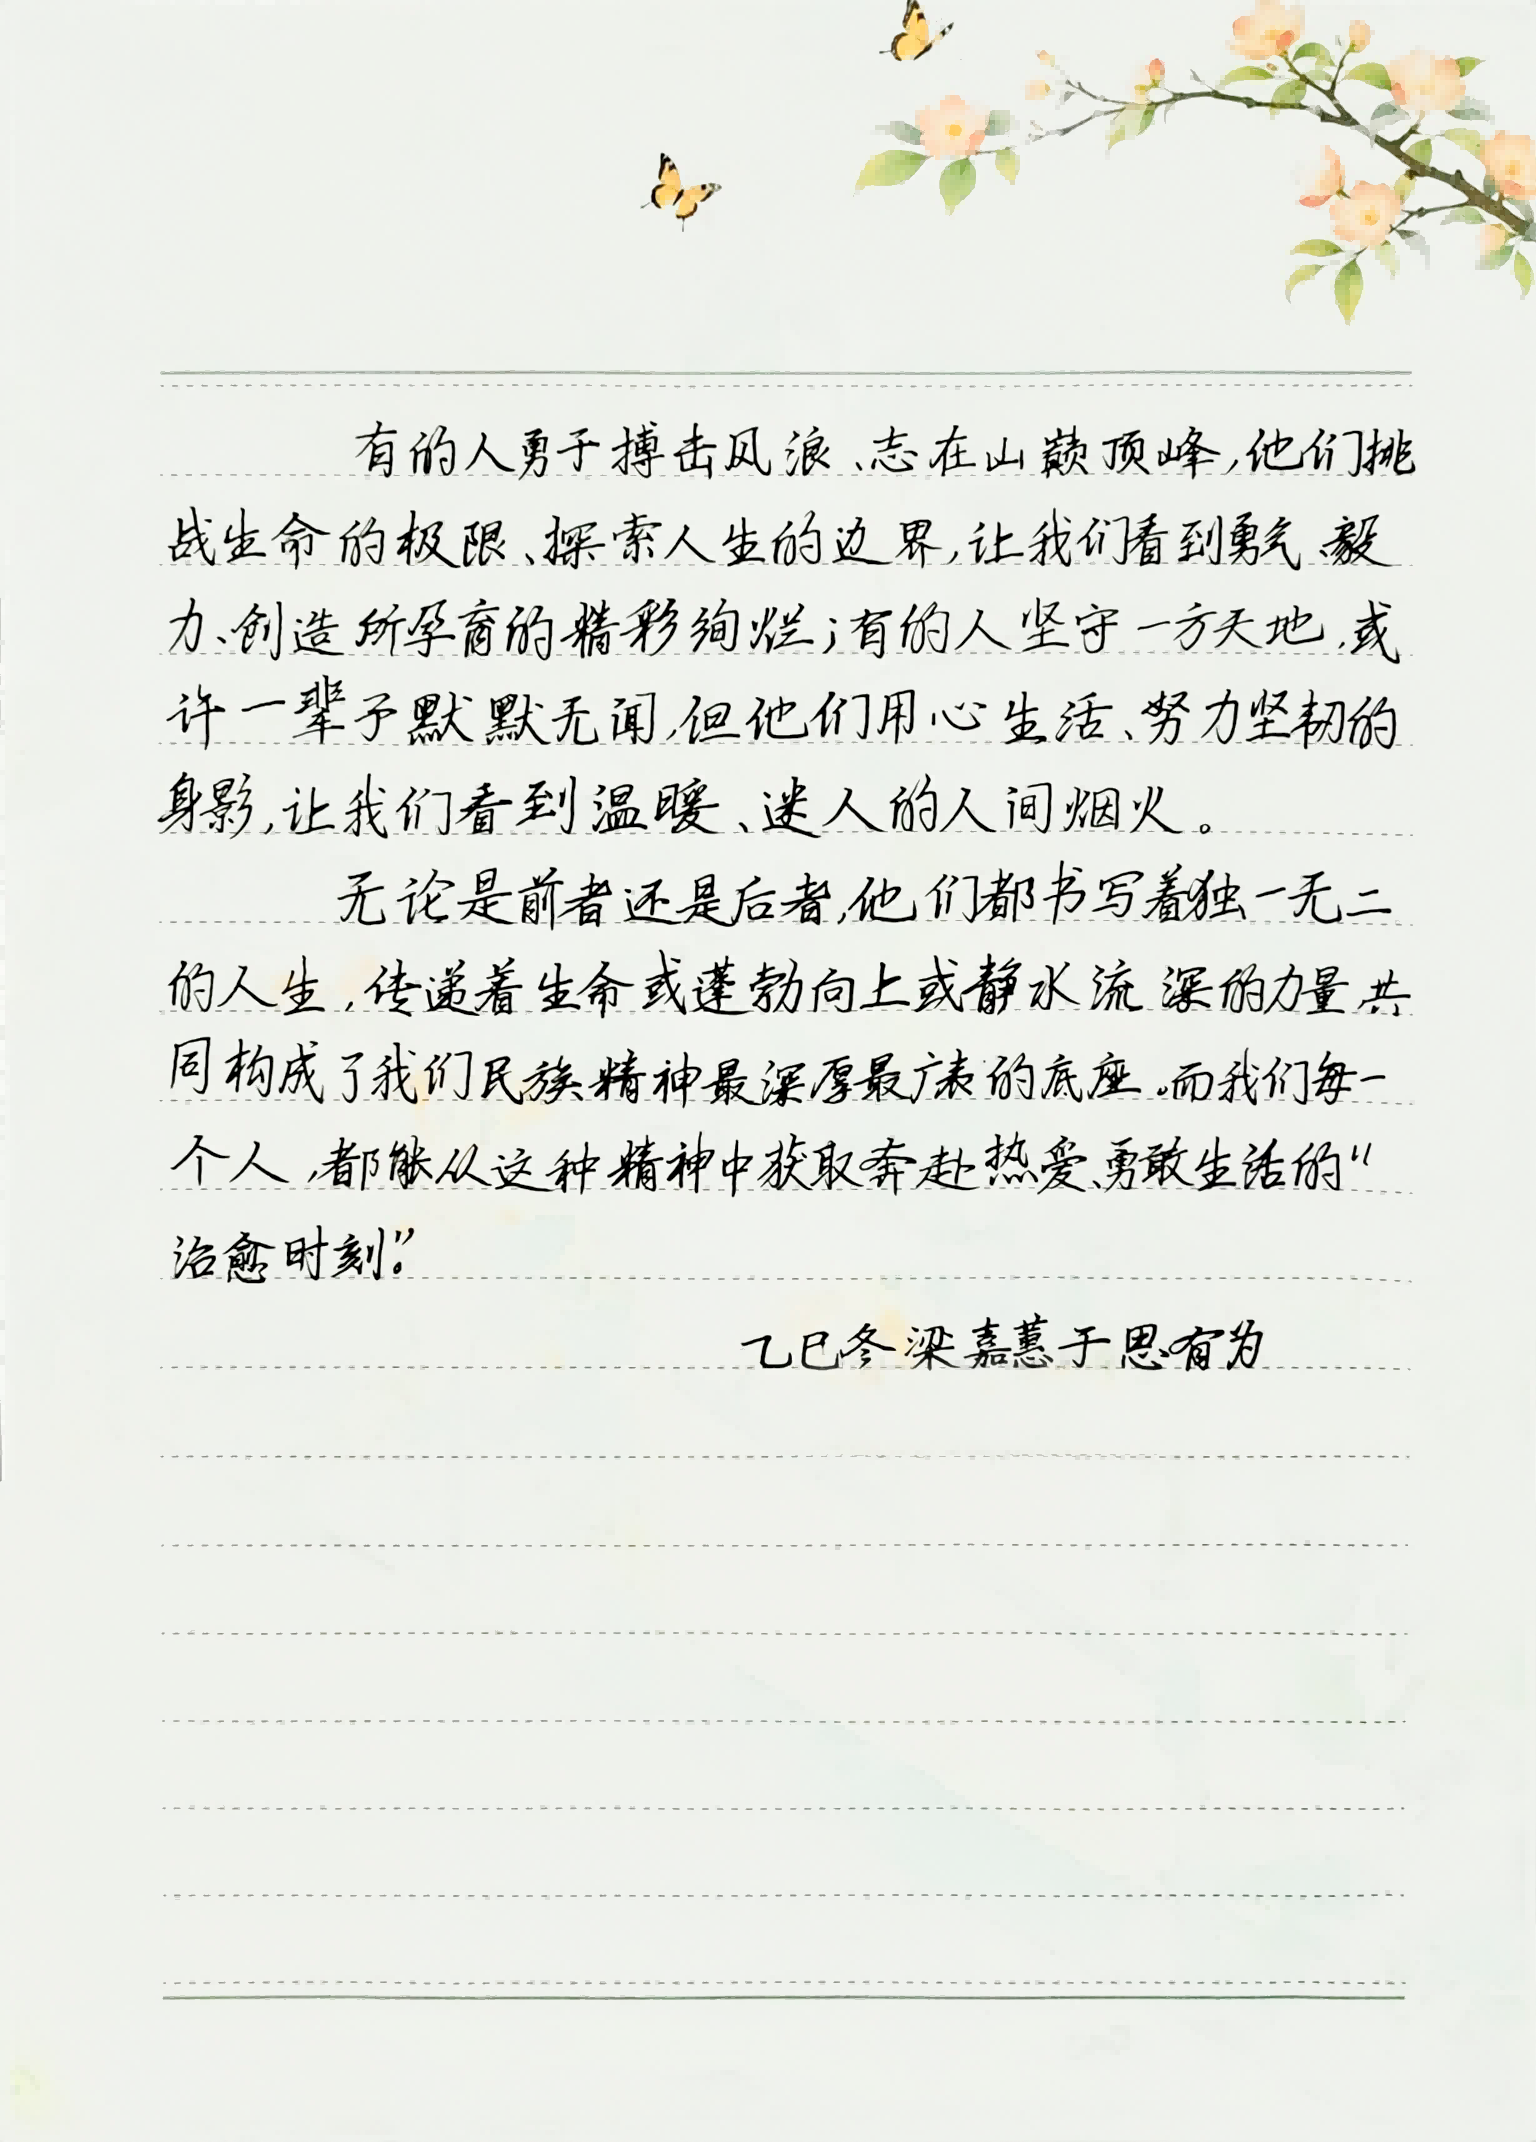 有的人勇于搏击风浪、志在山巅顶峰,他们挑
战生命的极限、探索人生的边界,让我们看到勇气、毅
力、创造所孕育的精彩绚烂;有的人坚守一方天地,或
许一辈子默默无闻,但他们用心生活、努力坚韧的
身影,让我们看到温暖、迷人的人间烟火。
无论是前者还是后者,他们都书写着独一无二
的人生,传递着生命或蓬勃向上或静水流深的力量,共
同构成了我们民族精神最深厚最广袤的底座。而我们每一
个人,都能从这种精神中获取奔赴热爱、勇敢生活的“
治愈时刻”。
乙巳冬梁嘉蕙于思有为